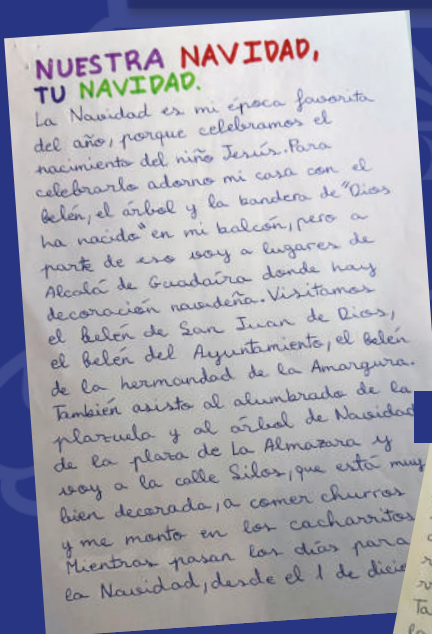 NUESTRA NAVIDAD,
TU NAVIDAD.
La Navidad es mi época favorita
del año, porque celebramos el
nacimiento del niño Jesús. Para
celebrarlo adorno mi casa con el
belén, el árbol y la bandera de "Dios
ha nacido" en mi balcón, pero a
parte de eso voy a lugares de
Alcalá de Guadaíra donde hay
decoración navideña. Visitamos
el belén de San Juan de Dios,
el belén del Ayuntamiento, el belén
de la hermandad de la Amargura.
También asisto al alumbrado de la
plazuela y al árbol de Navidad
de la plaza de La Almazara y
voy a la calle Silos, que está muy
bien decorada, a comer churros
y me monto en los cacharritos
Mientras pasan los días para
la Navidad, desde el 1 de dicie
Ta